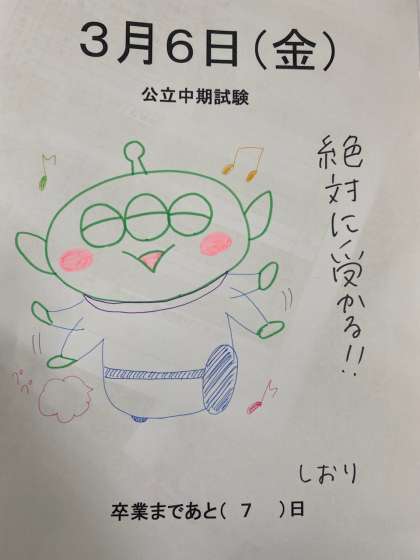 3月6日(金)
公立中期試験
絶対に受かる!!
プププ
しおり
卒業まであと( 7 )日